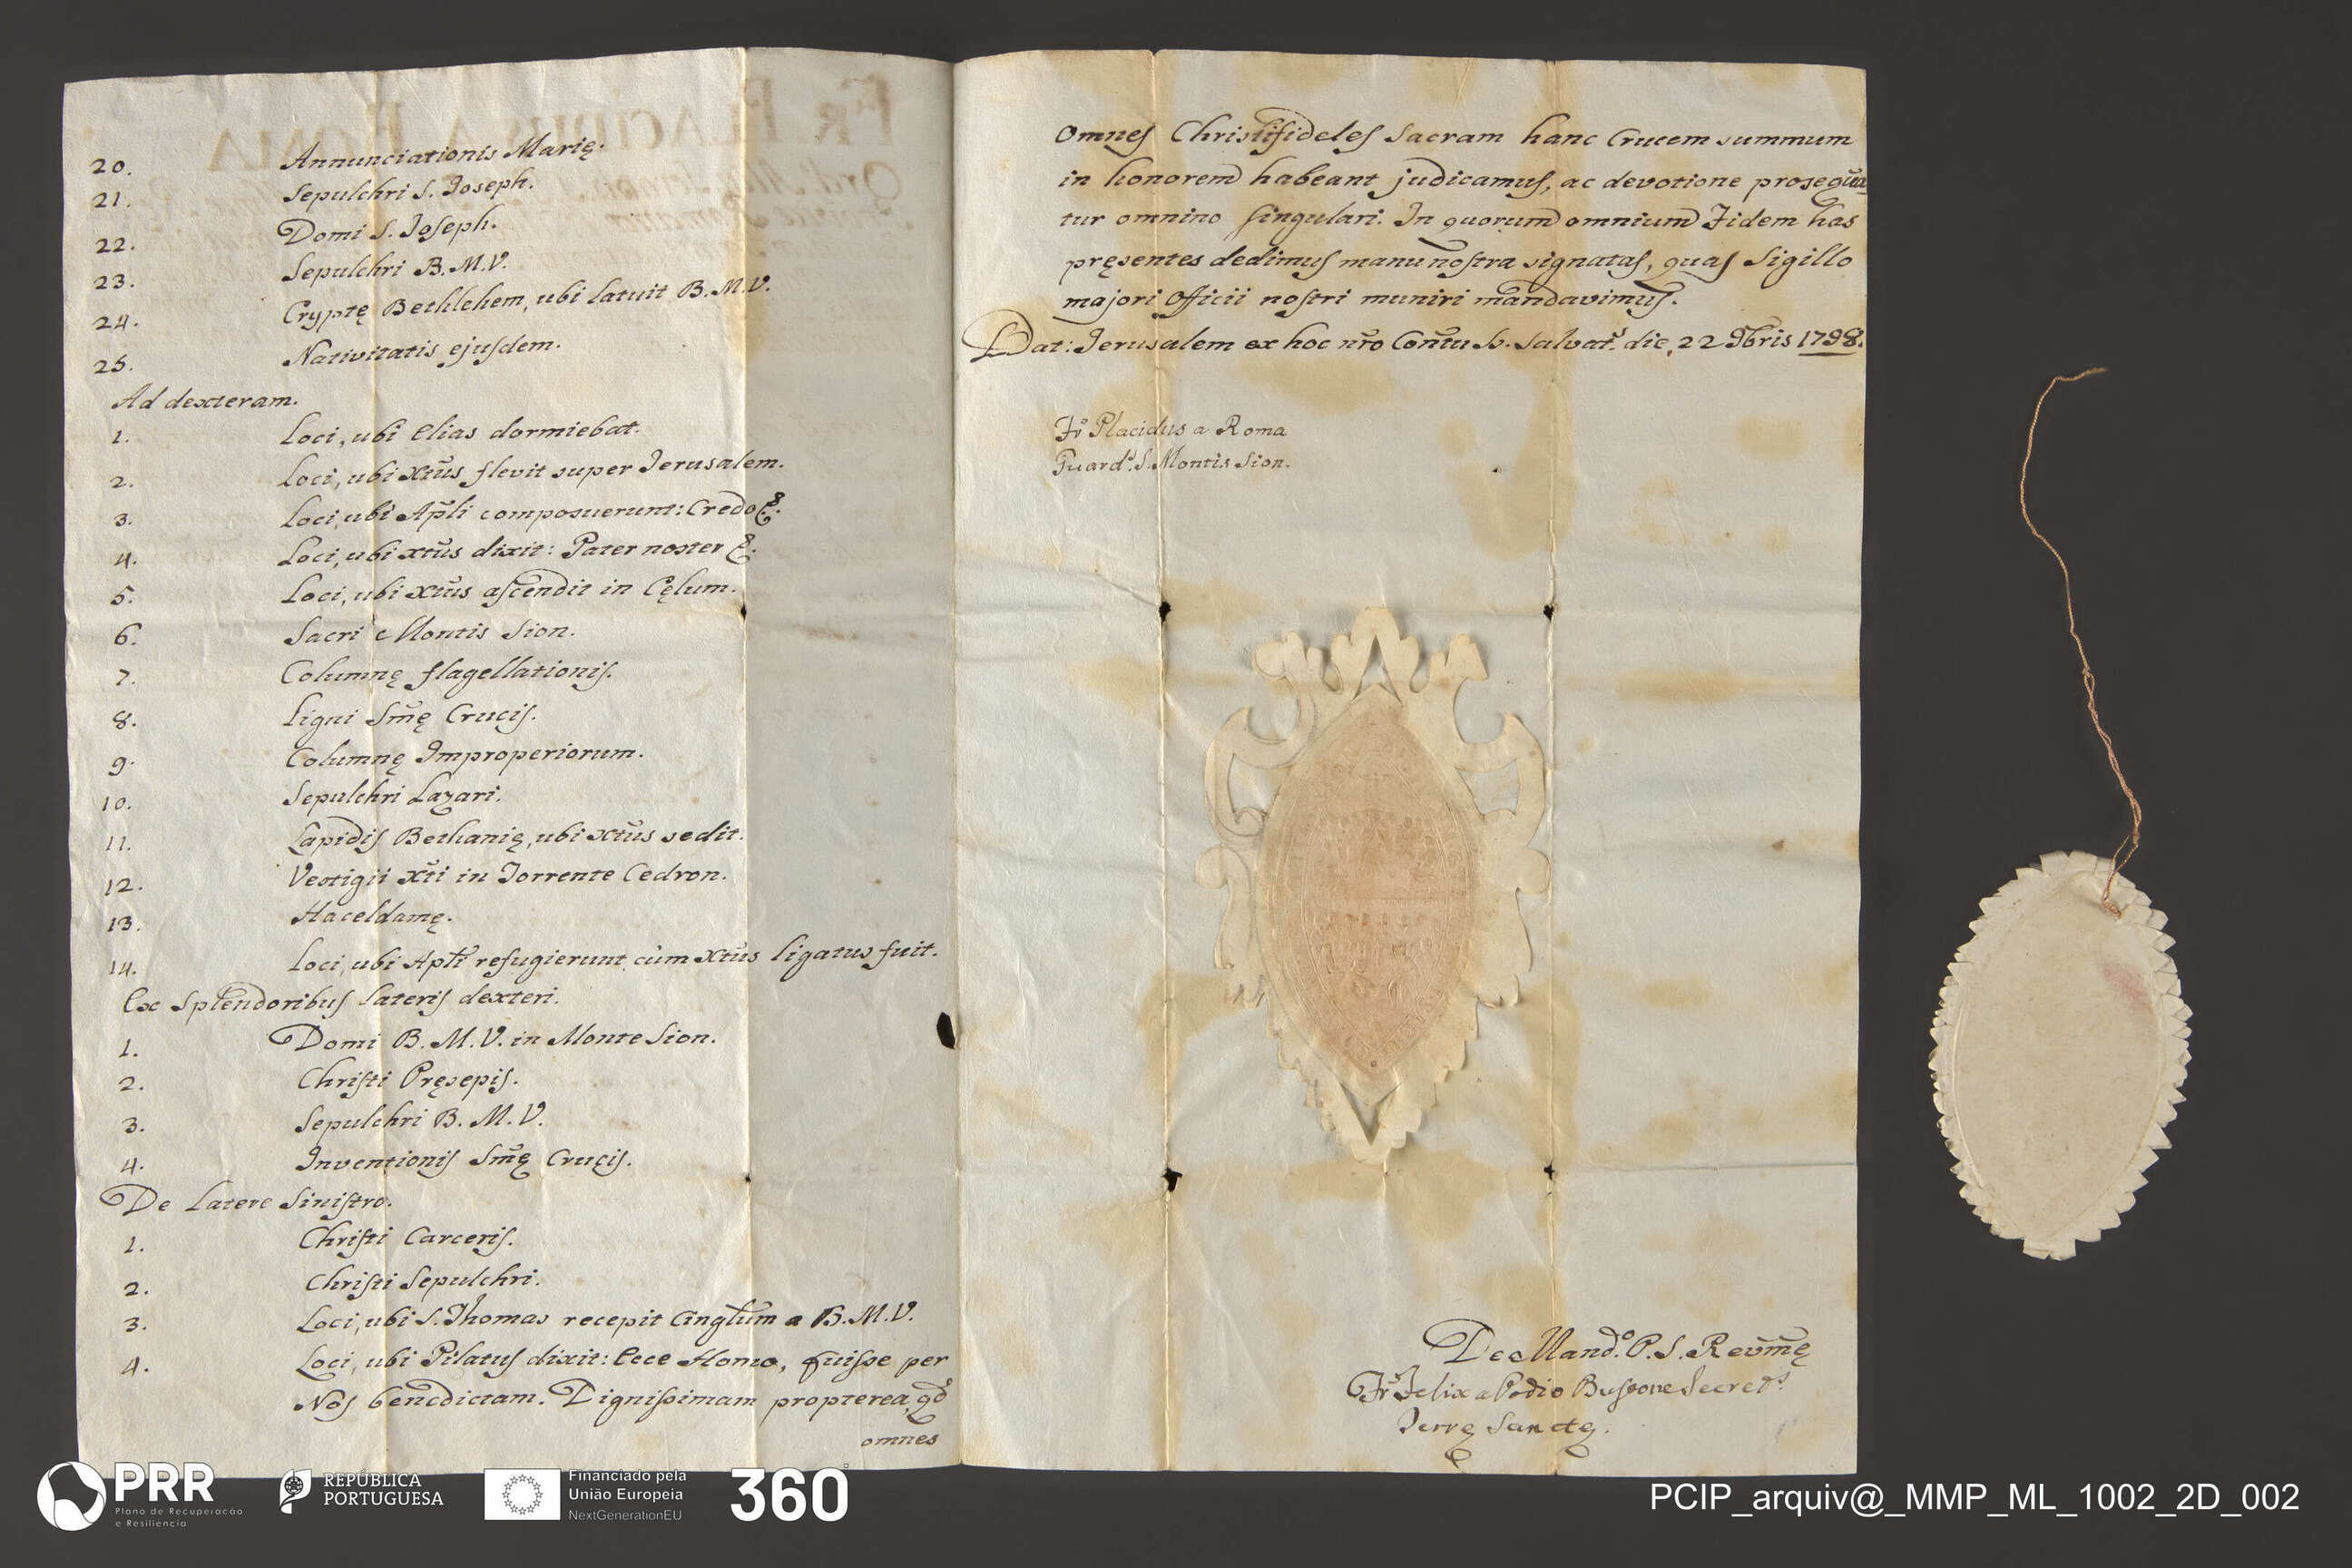 20. Annunciationis Marię.
21. Sepulchri S. Joseph.
22. Domi S. Joseph.
23. Sepulchri B. M. V.
24. Cryptę Bethlehem, ubi latuit B. M. V.
25. Nativitatis ejusdem.
Ad dexteram.
1. Loci, ubi Elias dormiebat.
2. Loci, ubi Xtũs flevit super Jerusalem.
3. Loci, ubi Apl̃i composuerunt: Credo &.
4. Loci, ubi xtũs dixit: Pater noster &.
5. Loci, ubi Xtũs ascendit in Cęlum.
6. Sacri Montis Sion.
7. Columnę flagellationis.
8. Ligni Sm̃ę Crucis.
9. Columnę Improperiorum.
10. Sepulchri Lazari.
11. Lapidis Bethanię, ubi xtũs sedit.
12. Vestigii Xti in Torrente Cedron.
13. Haceldamę.
14. Loci, ubi Apl̃i refugierunt, cùm Xtũs ligatus fuit.
Ex Splendoribus Lateris dexteri.
1. Domi B. M. V. in Monte Sion.
2. Christi Pręsepis.
3. Sepulchri B. M. V.
4. Inventionis Sm̃ę Crucis.
De Latere Sinistro.
1. Christi Carceris.
2. Christi Sepulchri.
3. Loci, ubi S. Thomas recepit Cingl̃um a B. M. V.
4. Loci, ubi Pilatus dixit: Ecce Homo, fuisse per
Nos benedictam. Dignissimam propterea, qd̃
omnes
Omnes Christifideles Sacram hanc Crucem summum
in honorem habeant judicamus, ac devotione prosequã
tur omnino singulari. In quorum omnium Fidem has
pręsentes dedimus manu nostra signatas, quas Sigillo
majori Officii nostri muniri mandavimus.
Dat: Jerusalem ex hoc nr̃o Conṽtu S. Salvat.ˢ die 22 9bris 1798.
Fr̃ Placidus a Roma
Guard.ˢ S. Montis Sion.
De Mand.º P. S. Reṽmę
Fr̃ Felix a Podio Bussone Secret.ˢ
Terrę Sanctę.
PRR
Plano de Recuperação
e Resiliência
REPÚBLICA
PORTUGUESA
Financiado pela
União Europeia
NextGenerationEU
360°
PCIP_arquiv@_MMP_ML_1002_2D_002